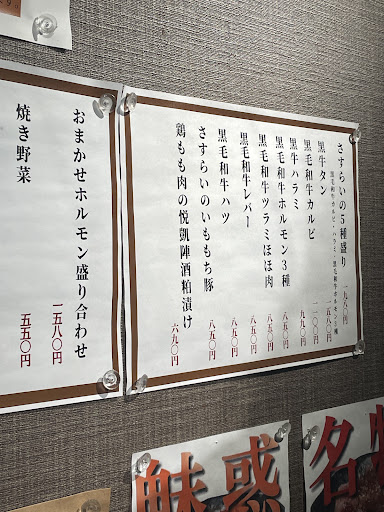 さすらいの5種盛り 一九八〇円
黒毛和牛カルビ・ハラミ・黒毛和牛ホルモン3種
黒牛タン 一五八〇円
黒毛和牛カルビ 一一〇〇円
黒牛ハラミ 九九〇円
黒毛和牛ホルモン3種 八五〇円
黒毛和牛ツラミほほ肉 八五〇円
黒毛和牛レバー 八五〇円
黒毛和牛ハツ 八五〇円
さすらいのいももち豚 八五〇円
鶏もも肉の悦凱陣酒粕漬け 六九〇円
おまかせホルモン盛り合わせ 一五八〇円
焼き野菜 五五〇円
魅惑
名物